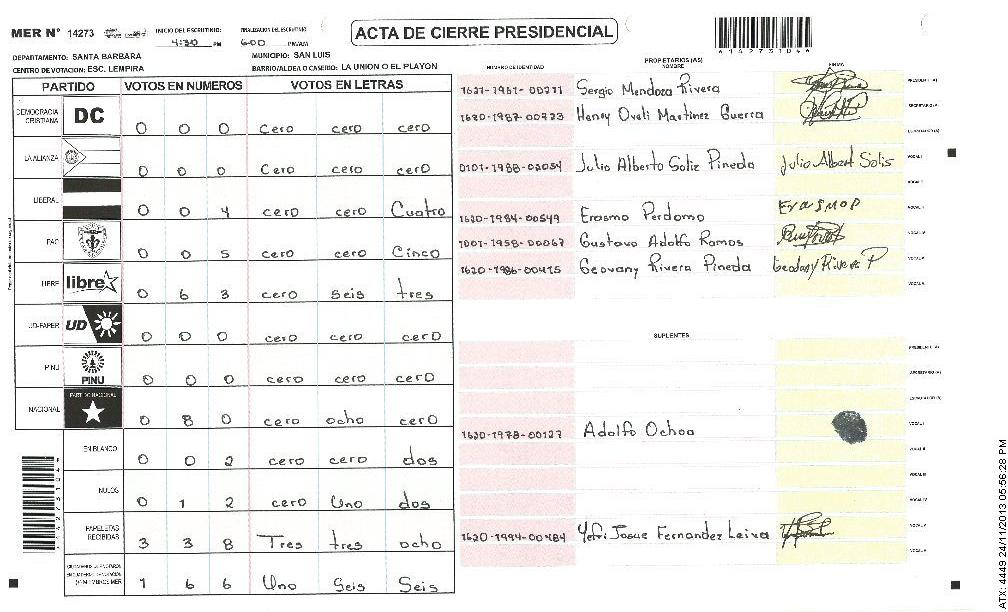 MER Nº 14273
INICIO DEL ESCRUTINIO: 4:30 PM
FINALIZACION DEL ESCRUTINIO: 6:00 PM/AM
ACTA DE CIERRE PRESIDENCIAL
DEPARTAMENTO: SANTA BARBARA
MUNICIPIO: SAN LUIS
CENTRO DE VOTACION: ESC. LEMPIRA
BARRIO/ALDEA O CASERIO: LA UNION O EL PLAYON
PARTIDO VOTOS EN NUMEROS VOTOS EN LETRAS
DEMOCRACIA CRISTIANA DC 0 0 0 cero cero cero
LA ALIANZA 0 0 0 Cero cero cerO
LIBERAL 0 0 4 cero cero Cuatro
PAC 0 0 5 cero cero Cinco
LIBRE libre 0 6 3 cero Seis tres
UD-FAPER UD 0 0 0 cero cero cerO
PINU PINU 0 0 0 cero cero cerO
NACIONAL PARTIDO NACIONAL 0 8 0 cero ocho cerO
EN BLANCO 0 0 2 cero cero dos
NULOS 0 1 2 cero Uno dos
PAPELETAS RECIBIDAS 3 3 8 Tres tres ocho
1 6 6 Uno Seis Seis
PROPIETARIOS (AS)
NUMERO DE IDENTIDAD NOMBRE FIRMA
Sergio Mendoza Rivera PRESIDENTE (A)
1620-1987-00723 Henry Oveli Martinez Guerra SECRETARIO (A)
ESCRUTADOR (A)
0101-1988-02054 Julio Alberto Soliz Pineda Julio Albert Solis VOCAL I
VOCAL II
1620-1984-00549 Erasmo Perdomo ErasmoP
Gustavo Adolfo Ramos
1620-1986-00475 Geovany Rivera Pineda Geovany Rivera P
SUPLENTES
PRESIDENTE (A)
SECRETARIO (A)
ESCRUTADOR (A)
1620-1978-00127 Adolfo Ochoa VOCAL I
VOCAL II
VOCAL III
VOCAL IV
1620-1994-00484 Yefri Josue Fernandez Leiva VOCAL V
ATX: 4449 24/11/2013 05:56:28 PM